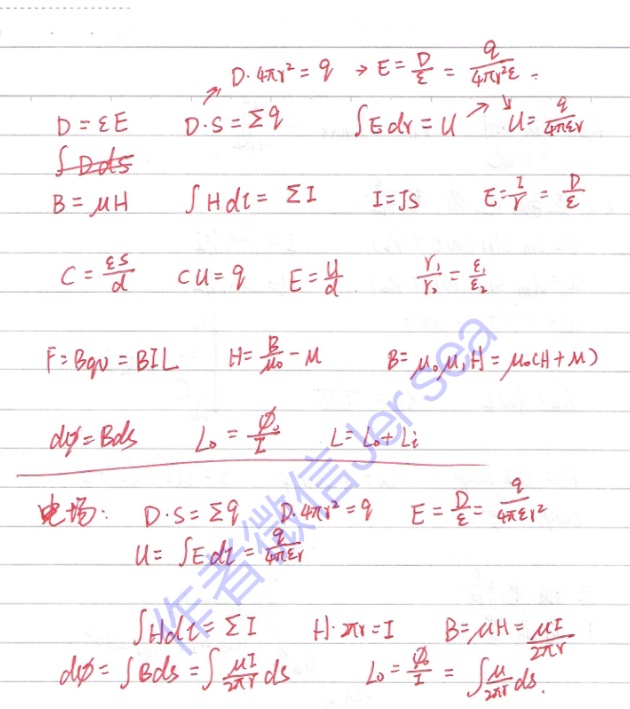 D·4πr² = q → E = D/ε = q/4πr²ε
D = εE D·S = Σq ∫Edr = U U = q/4πεr
∫Dds
B = μH ∫Hdl = ΣI I = JS E = J/γ = D/ε
C = εs/d CU = q E = U/d γ₁/γ₂ = ε₁/ε₂
F = Bqv = BIL H = B/μ₀ - M B = μ₀μᵣH = μ₀(H + M)
dφ = Bds L₀ = φ₀/I L = L₀ + Li
电场: D·S = Σq D·4πr² = q E = D/ε = q/4πεr²
U = ∫Edl = q/4πεr
∫Hdl = ΣI H·2πr = I B = μH = μI/2πr
dφ = ∫Bds = ∫μI/2πr ds L₀ = φ₀/I = ∫μ/2πr ds.
作者微信Jersea